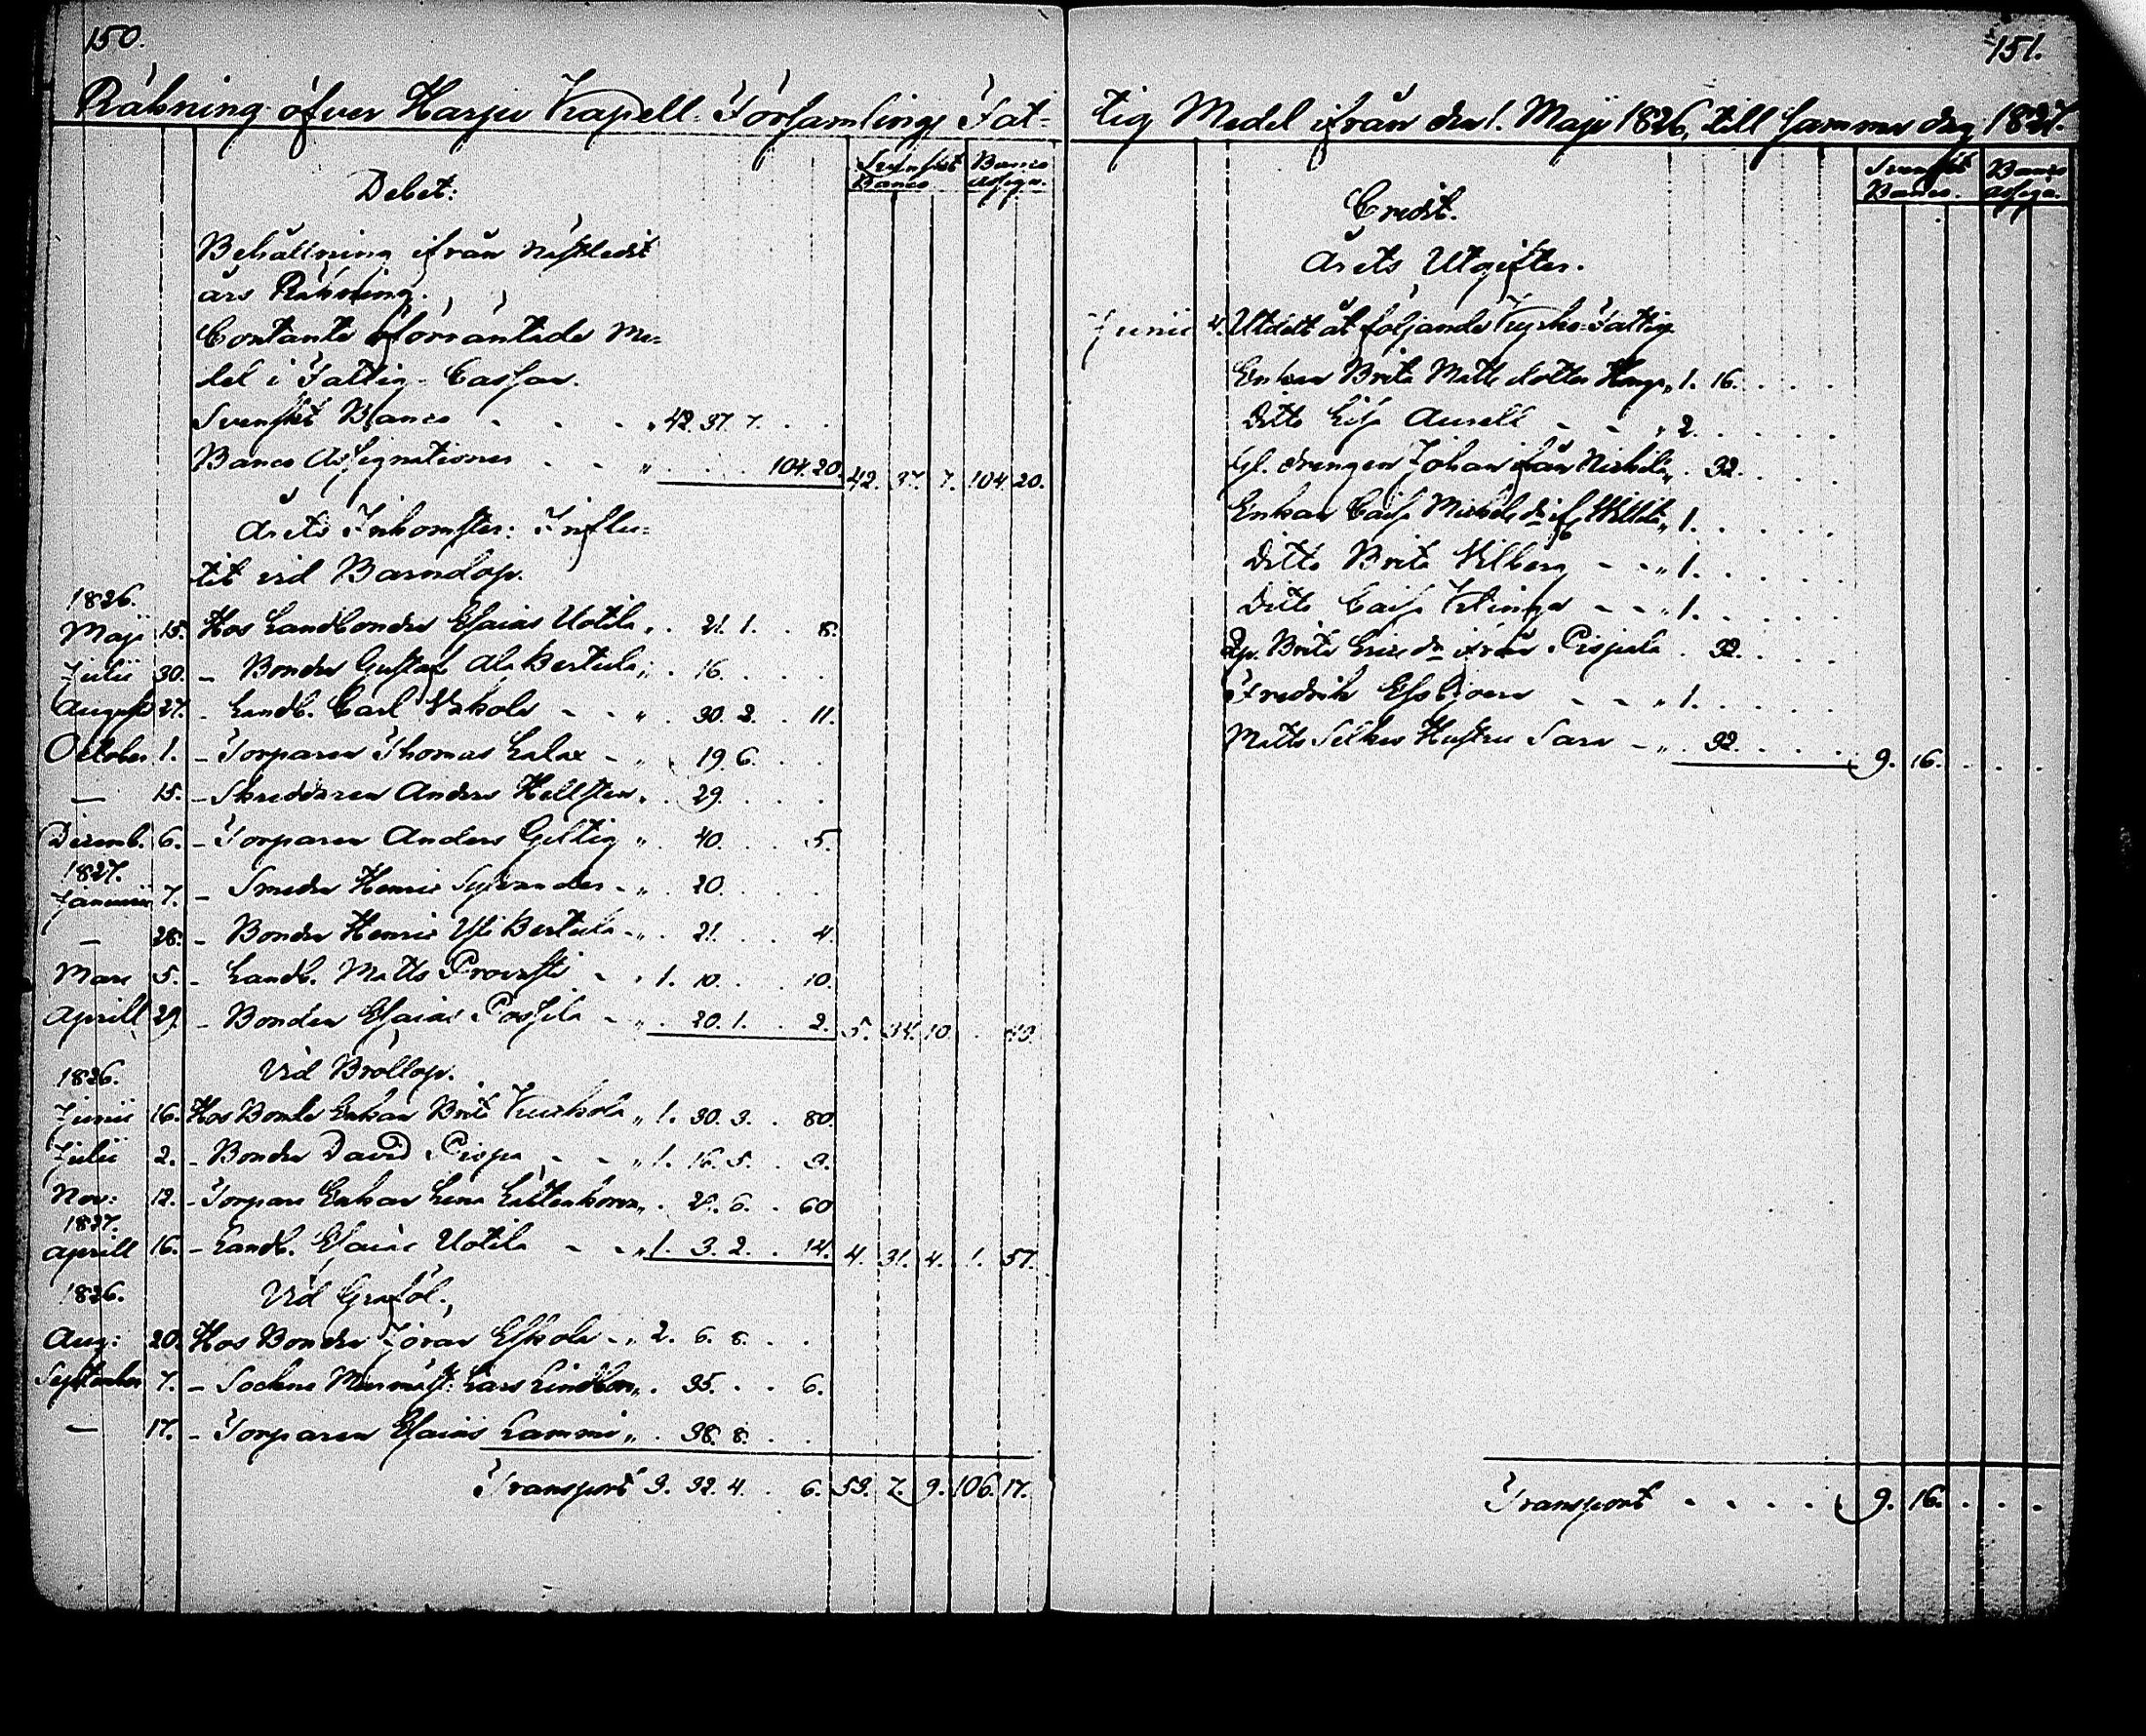 150.
Räkning öfver Harju Kapell-Församlings Fat-
Svenskt Banco Banco Assign.
Debet:
Behållning ifrån nästledit
års Räkning.
Contante oförräntade Me-
del i Fattig-Cassan.
Svenskt Banco - - - " 42. 37. 7. . .
Banco Assignationer - - " . . . 104. 20. 42. 37. 7. 104. 20.
Årets Inkomster: Influ-
tit vid Barndop.
1826.
Maji 15. Hos Landbonden Esaias Uotila " . 21. 1. . 8.
Julii 30. - Bonden Gustaf Ala Bertula " . 16. . . .
Augusti 27. - Landb. Carl - - " . 30. 2. . 11.
October 1. - Torparen Thomas Lalax - " . 19. 6. . .
— 15. - Skreddaren Anders Hellsten " . 29. . . .
Decemb. 6. - Torparen Anders Gilltig " . 40. . . 5.
1827.
Januarii 7. - Smeden Henric Sylvander - " . 20. . . .
— 28. - Bonden Henric Yli Bertula - " . 21. . . 4.
Mars 5. - Landb. Matts Provasti - " 1. 10. . . 10.
Aprill 29. - Bonden Esaias Possila - " . 20. 1. . 2. 5. 34. 10. . 40.
Vid Bröllop.
1826.
Junii 16. Hos Bonde Enkan Brita " 1. 30. 3. . 80.
Julii 2. - Bonden David Pispa - - " 1. 16. 5. . 3.
Nov: 12. - Torpare Enkan Lena " . 29. 6. . 60
1827.
Aprill 16. - Landb. Esaias Uotila - - " 1. 3. 2. . 14. 4. 31. 4. 1. 57.
1826. Vid Graföl.
Aug: 20. Hos Bonden Jöran Eskola - " 2. 6. 8. . .
September 7. - Sockne Lars " . 35. . . 6.
— 17. - Torparen Esaias Lammi " . 38. 8. . .
Transport 3. 32. 4. . 6. 53. 7. 9. 106. 17.
151.
tig Medel ifrån den 1. Maji 1826, till samma dag 1827.
Svenskt Banco. Banco Assign.
Credit.
Årets Utgifter.
Junii 4. Utdelt åt följande Kyrko-Fattige
Enkan Brita Matts dotter " 1. 16. . . .
Ditto Lisa Aurell - - " 2. . . . .
Gl. drengen Johan ifrån " . 32. . . .
Enkan Caisa Michels dr " 1. . . . .
Ditto Brita Vilberg - - " 1. . . . .
Ditto Caisa - - " 1. . . . .
Brita Erics dr ifrån . 32. . . .
Fredrik - - " 1. . . . .
Matts Hustru Sara - " . 32. . . . 9. 16. . . .
Transport - - - - 9. 16. . . .